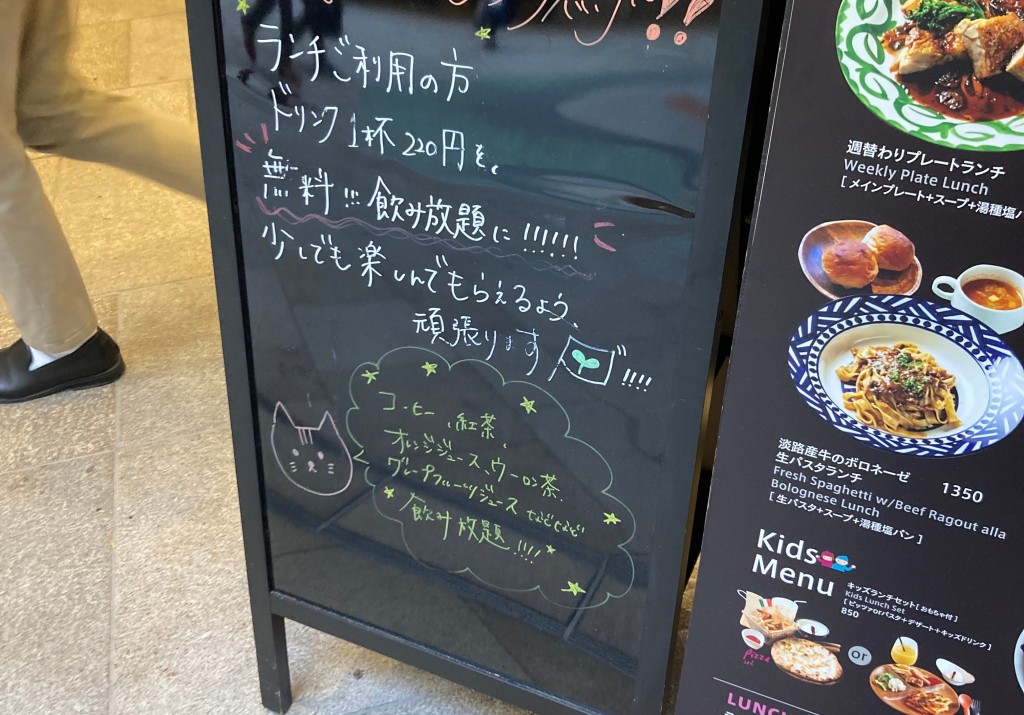 ランチご利用の方
ドリンク1杯220円を、
無料!!! 飲み放題に!!!!!!
少しでも楽しんでもらえるよう、
頑張ります!!!!
コーヒー、紅茶、
オレンジジュース、ウーロン茶、
グレープフルーツジュース などなど
飲み放題!!!!
週替わりプレートランチ
Weekly Plate Lunch
[ メインプレート+スープ+湯種塩パ
淡路産牛のボロネーゼ
生パスタランチ 1350
Fresh Spaghetti w/Beef Ragout alla
Bolognese Lunch
[ 生パスタ+スープ+湯種塩パン ]
Kids
Menu
キッズランチセット[ おもちゃ付 ]
Kids Lunch Set
[ ピッツァorパスタ+デザート+キッズドリンク ]
850
Pizza
or
LUNCH